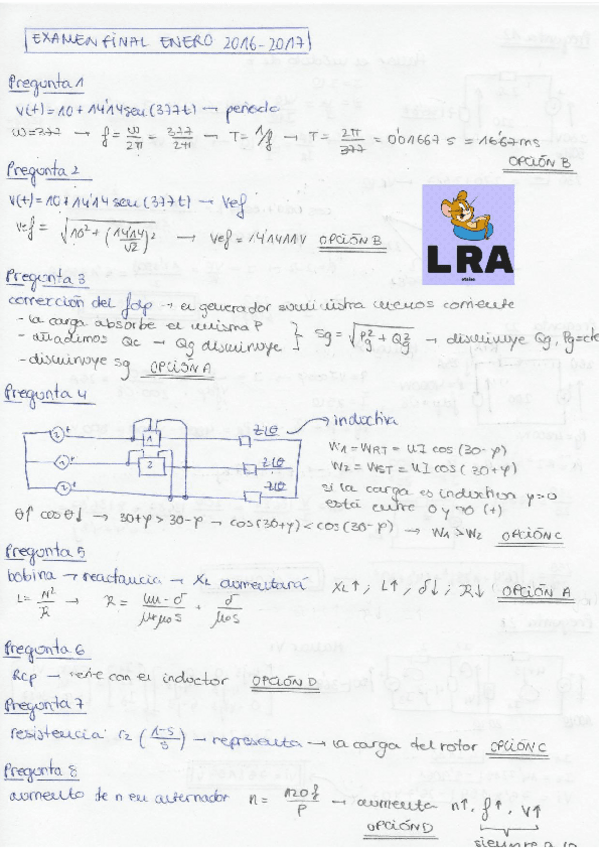 EXAMEN FINAL ENERO 2016-2017
Pregunta 1
v(t)=10+14'14sen(377t) → periodo
ω=377 → f= ω/2π = 377/2π → T= 1/f → T= 2π/377 = 0'01667 s = 16'67ms
OPCIÓN B
Pregunta 2
v(t)=10+14'14 sen(377t) → Vef
Vef = √10²+(14'14/√2)² → Vef=14'1411V OPCIÓN B
LRA
Pregunta 3
corrección del fdp → el generador suministra menos corriente
- la carga absorbe el misma P
- añadimos Qc → Qg disminuye } Sg=√Pg²+Qg² → disminuye Qg, Pg=cte
- disminuye Sg OPCIÓN A
Pregunta 4
Z∟θ → inductiva
1
2
Z∟θ
Z∟θ
W1=WRT=UI cos(30-φ)
W2=WST=UI cos(30+φ)
si la carga es inductiva φ>0
está entre 0 y 90 (+)
θ↑ cosθ↓ → 30+φ > 30-φ → cos(30+φ) < cos(30-φ) → W1>W2 OPCIÓN C
Pregunta 5
bobina → reactancia → XL aumentará XL↑; L↑, δ↓; R↓ OPCIÓN A
L= N²/R → R = lm-δ/μrμ0S + δ/μ0S
Pregunta 6
Rcp → serie con el inductor OPCIÓN D
Pregunta 7
resistencia r2 (1-S/S) → representa → la carga del rotor OPCIÓN C
Pregunta 8
aumento de n en alternador n= 120f/P → aumenta n↑, f↑, V↑
OPCIÓN D